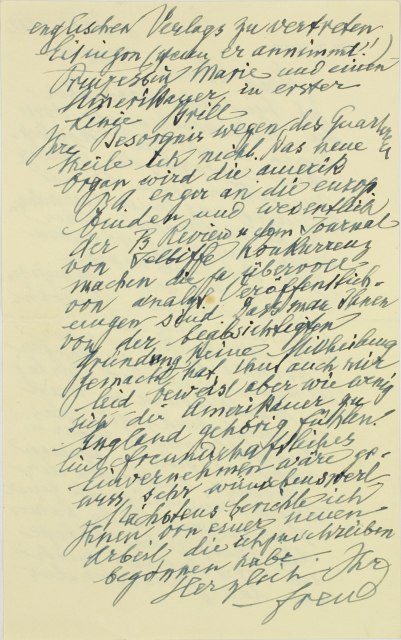 englischen Verlags zu vertreten
Eitingon (wenn er annimmt!!)
Prinzessin Marie und einen
Amerikaner, in erster
Linie Brill
Ihre Besorgnis wegen des Quarterly
theile ich nicht. Das neue
Organ wird die amerik
enger an die europ.
binden und wesentlich
der Ps Review u dem Journal
von Jelliffe Konkurrenz
machen die ja übervoll
von analyt Veröffentlich-
ungen sind. Dass man Ihnen
von der beabsichtigten
Gründung keine Mittheilung
gemacht hat, thut auch mir
leid, beweist aber wie wenig
sich die Amerikaner zu
England gehörig fühlen.
Ein freundschaftliches
Einvernehmen wäre ge-
wiss sehr wünschenswert
Nächstens berichte ich
Ihnen von einer neuen
Arbeit, die ich zu schreiben
begonnen habe.
Herzlich Ihr
Freud